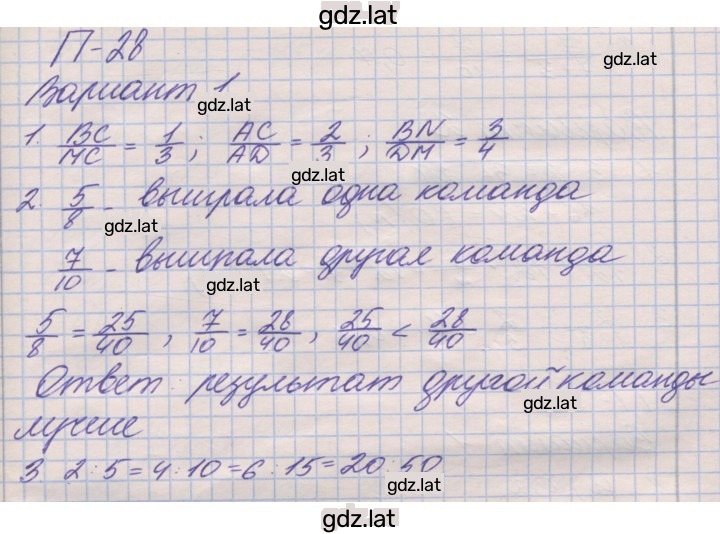 gdz.lat
П-28
Вариант 1
gdz.lat
1. BC/MC = 1/3; AC/AD = 2/3; BN/DM = 3/4
gdz.lat
2. 5/8 - выиграла одна команда
gdz.lat
7/10 - выиграла другая команда
gdz.lat
5/8 = 25/40, 7/10 = 28/40, 25/40 < 28/40
Ответ результат другой команды
gdz.lat
лучше
3 2:5=4:10=6:15=20:50
gdz.lat
gdz.lat